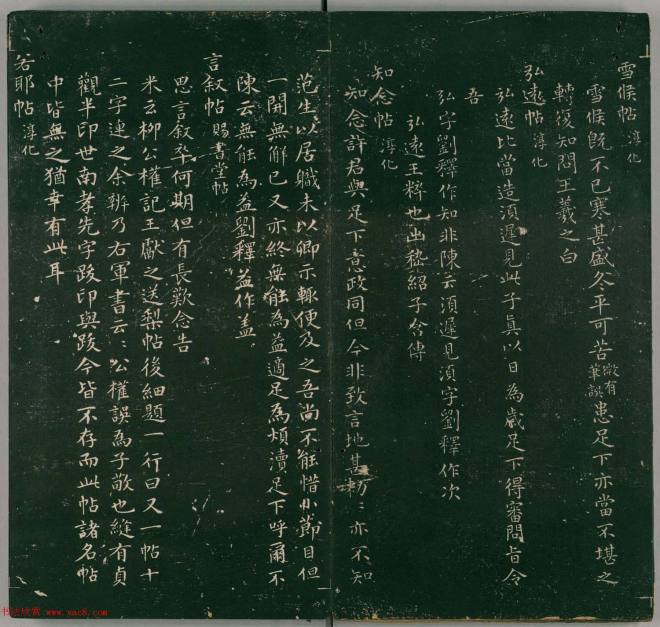 雪候帖 淳化
雪候既不已寒甚盛冬平可苦 微有筆誤 患足下亦當不堪之
轉復知問王羲之白
弘遠帖 淳化
弘遠比當造須遲見此子真以日為歲足下得審問旨令
吾
弘字劉釋作知非陳云須遲見須字劉釋作次
弘遠王粹也出嵇紹子含傳
知念帖 淳化
知念許君與足下意政同但今非致言地甚勑〻亦不知
范生以居職未以卿示輒便及之吾尚不能惜小節目但
一開無解已又亦終無能為益適足為煩瀆足下呼爾不
陳云無能為益劉釋益作蓋
言叙帖 賜書堂帖
思言叙卒何期但有長歎念告
米云柳公權記王獻之送梨帖後細題一行曰又一帖十
二字連之余辨乃右軍書云〻公權誤為子敬也縫有貞
觀半印世南孝先字跋印與跋今皆不存而此帖諸名帖
中皆無之猶幸有此耳
若耶帖 淳化
书法欣赏 www.yac8.com